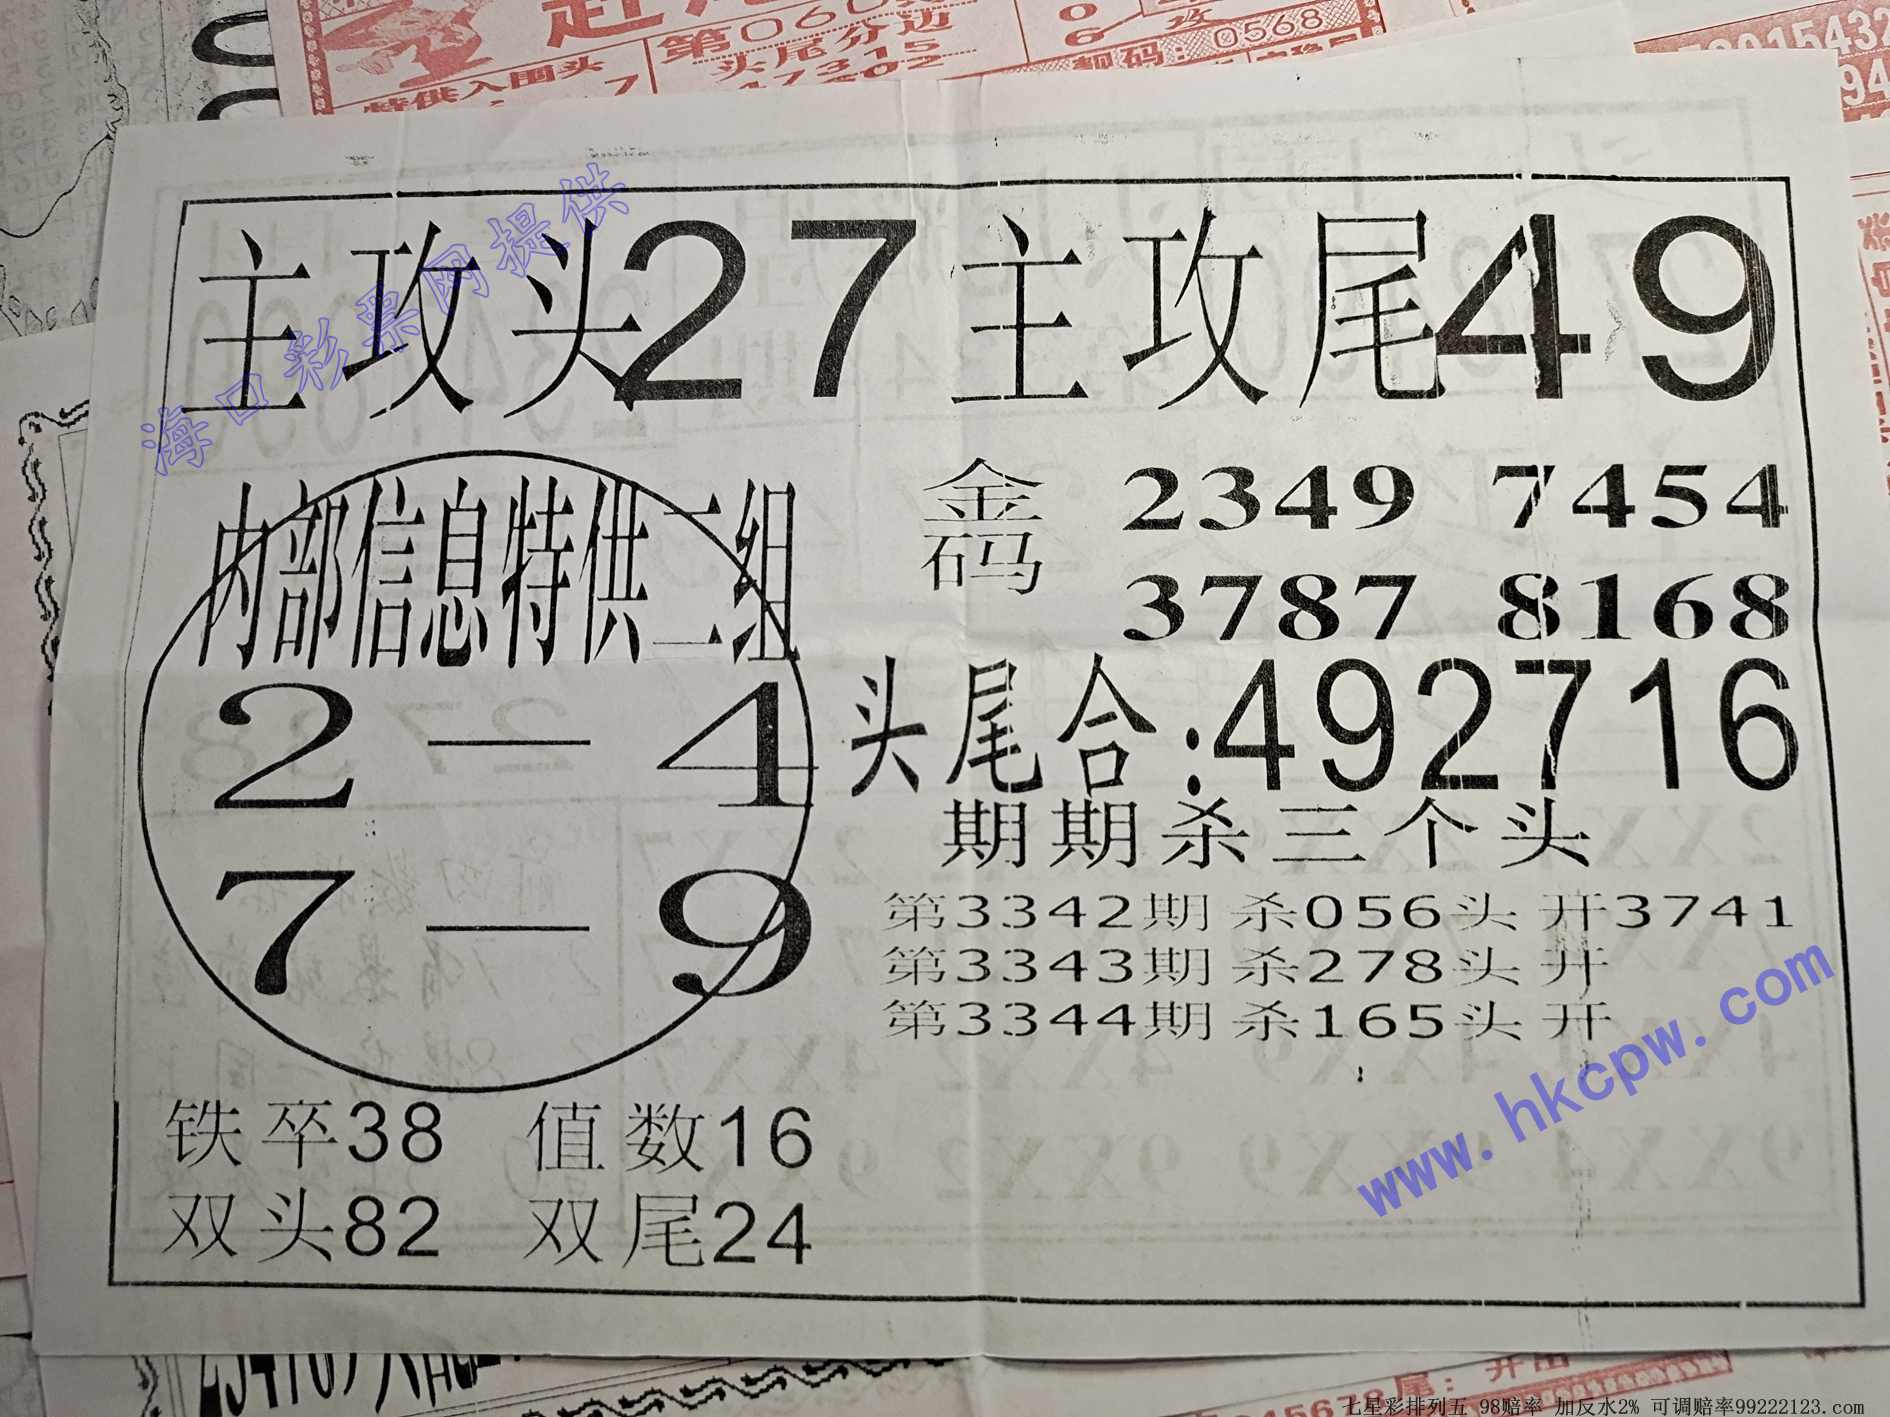 第060期
头尾分边
47315
47202
特供入围头
7
靓码：0568
攻
主攻头27 主攻尾49
海口彩票网提供
内部信息特供二组
2—4
7—9
金码 2349 7454
3787 8168
头尾合:492716
期期杀三个头
第3342期 杀056头 开3741
第3343期 杀278头 开
第3344期 杀165头 开
www.hkcpw.com
铁卒38 值数16
双头82 双尾24
七星彩排列五 98赔率 加反水2% 可调赔率99222123.com